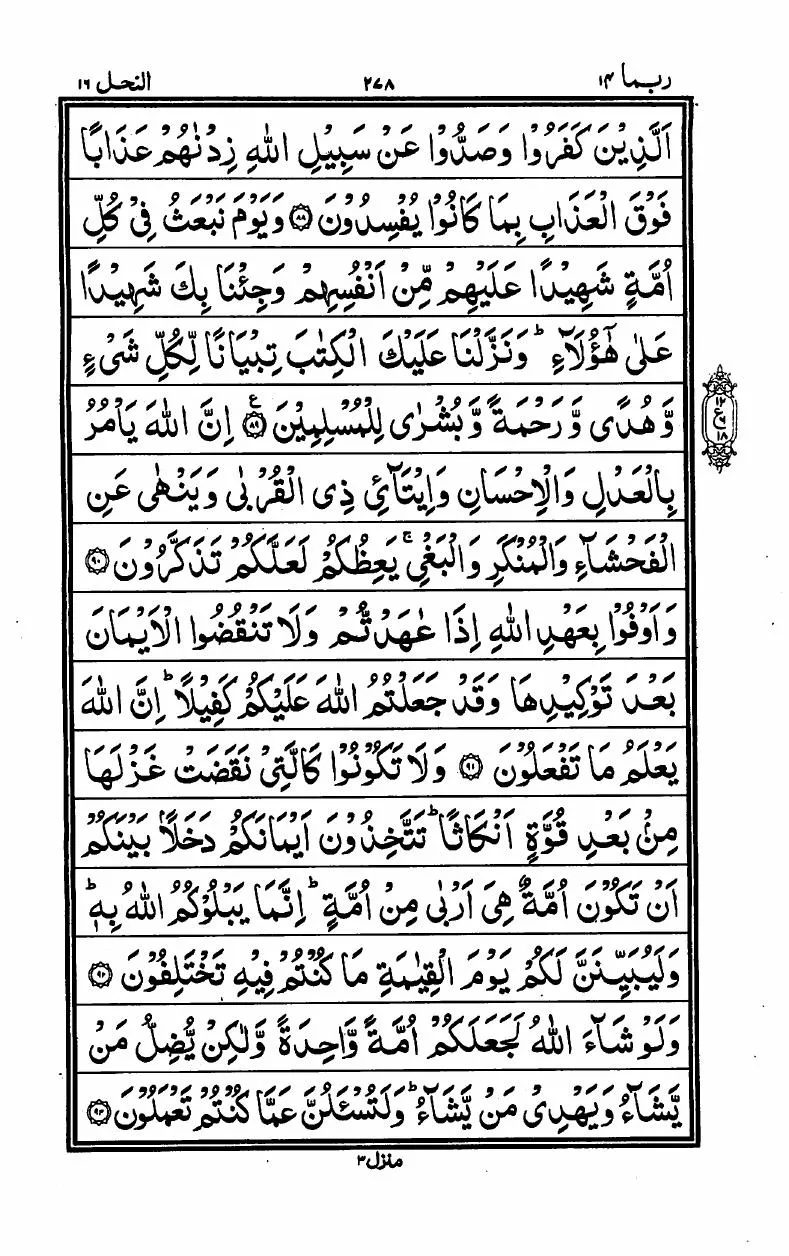 ربما ۱۴
۲۷۸
النحل ۱۶
اَلَّذِيْنَ كَفَرُوْا وَصَدُّوْا عَنْ سَبِيْلِ اللّٰهِ زِدْنٰهُمْ عَذَابًا
فَوْقَ الْعَذَابِ بِمَا كَانُوْا يُفْسِدُوْنَ ۸۸ وَيَوْمَ نَبْعَثُ فِيْ كُلِّ
اُمَّةٍ شَهِيْدًا عَلَيْهِمْ مِّنْ اَنْفُسِهِمْ وَجِئْنَا بِكَ شَهِيْدًا
عَلٰى هٰٓؤُلَآءِ ؕ وَنَزَّلْنَا عَلَيْكَ الْكِتٰبَ تِبْيَانًا لِّكُلِّ شَيْءٍ
وَّهُدًى وَّرَحْمَةً وَّبُشْرٰى لِلْمُسْلِمِيْنَ ۸۹ ع اِنَّ اللّٰهَ يَاْمُرُ
بِالْعَدْلِ وَالْاِحْسَانِ وَاِيْتَآئِ ذِى الْقُرْبٰى وَيَنْهٰى عَنِ
الْفَحْشَآءِ وَالْمُنْكَرِ وَالْبَغْيِ ۚ يَعِظُكُمْ لَعَلَّكُمْ تَذَكَّرُوْنَ ۹۰
وَاَوْفُوْا بِعَهْدِ اللّٰهِ اِذَا عٰهَدْتُّمْ وَلَا تَنْقُضُوا الْاَيْمَانَ
بَعْدَ تَوْكِيْدِهَا وَقَدْ جَعَلْتُمُ اللّٰهَ عَلَيْكُمْ كَفِيْلًا ؕ اِنَّ اللّٰهَ
يَعْلَمُ مَا تَفْعَلُوْنَ ۹۱ وَلَا تَكُوْنُوْا كَالَّتِيْ نَقَضَتْ غَزْلَهَا
مِنْۢ بَعْدِ قُوَّةٍ اَنْكَاثًا ؕ تَتَّخِذُوْنَ اَيْمَانَكُمْ دَخَلًاۢ بَيْنَكُمْ
اَنْ تَكُوْنَ اُمَّةٌ هِيَ اَرْبٰى مِنْ اُمَّةٍ ؕ اِنَّمَا يَبْلُوْكُمُ اللّٰهُ بِهٖ ؕ
وَلَيُبَيِّنَنَّ لَكُمْ يَوْمَ الْقِيٰمَةِ مَا كُنْتُمْ فِيْهِ تَخْتَلِفُوْنَ ۹۲
وَلَوْ شَآءَ اللّٰهُ لَجَعَلَكُمْ اُمَّةً وَّاحِدَةً وَّلٰكِنْ يُّضِلُّ مَنْ
يَّشَآءُ وَيَهْدِيْ مَنْ يَّشَآءُ ؕ وَلَتُسْـَٔلُنَّ عَمَّا كُنْتُمْ تَعْمَلُوْنَ ۹۳
ع
۱۸
منزل ۳